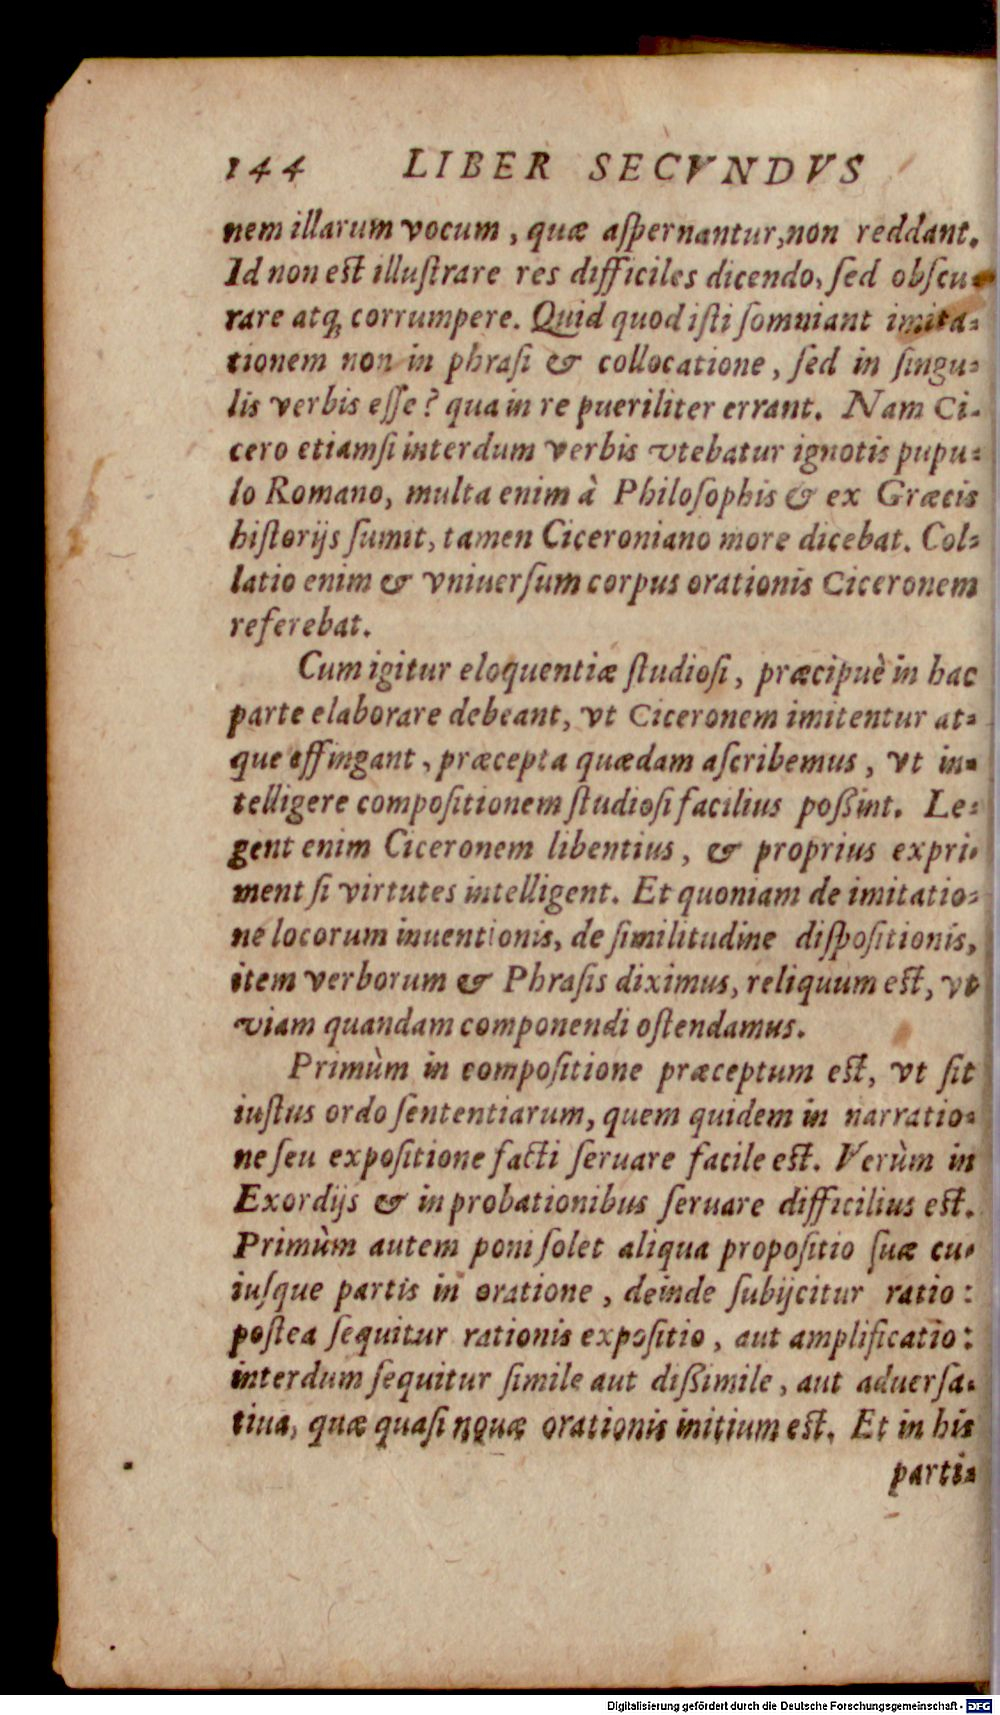 144 LIBER SECVNDVS
nem illarum vocum, quæ aſpernantur, non reddant.
Id non est illuſtrare res difficiles dicendo, ſed obſcu-
rare atq; corrumpere. Quid quod iſti ſomniant imita-
tionem non in phraſi & collocatione, ſed in ſingu-
lis verbis eſſe? qua in re pueriliter errant. Nam Ci-
cero etiamſi interdum verbis vtebatur ignotis pupu-
lo Romano, multa enim à Philoſophis & ex Græcis
hiſtorijs ſumit, tamen Ciceroniano more dicebat. Col-
latio enim & vniuerſum corpus orationis Ciceronem
referebat.
Cum igitur eloquentiæ ſtudioſi, præcipuè in hac
parte elaborare debeant, vt Ciceronem imitentur at-
que effingant, præcepta quædam aſcribemus, vt in-
telligere compoſitionem ſtudioſi facilius poßint. Le-
gent enim Ciceronem libentius, & proprius expri-
ment ſi virtutes intelligent. Et quoniam de imitatio-
ne locorum inuentionis, de ſimilitudine diſpoſitionis,
item verborum & Phraſis diximus, reliquum est, vt
viam quandam componendi oſtendamus.
Primùm in compoſitione præceptum est, vt ſit
iuſtus ordo ſententiarum, quem quidem in narratio-
ne ſeu expoſitione facti ſeruare facile est. Verùm in
Exordijs & in probationibus ſeruare difficilius est.
Primùm autem poni ſolet aliqua propoſitio ſuæ cu-
iuſque partis in oratione, deinde ſubijcitur ratio:
poſtea ſequitur rationis expoſitio, aut amplificatio:
interdum ſequitur ſimile aut dißimile, aut aduerſa-
tiua, quæ quaſi nouæ orationis initium est. Et in his
parti-
Digitalisierung gefördert durch die Deutsche Forschungsgemeinschaft - DFG